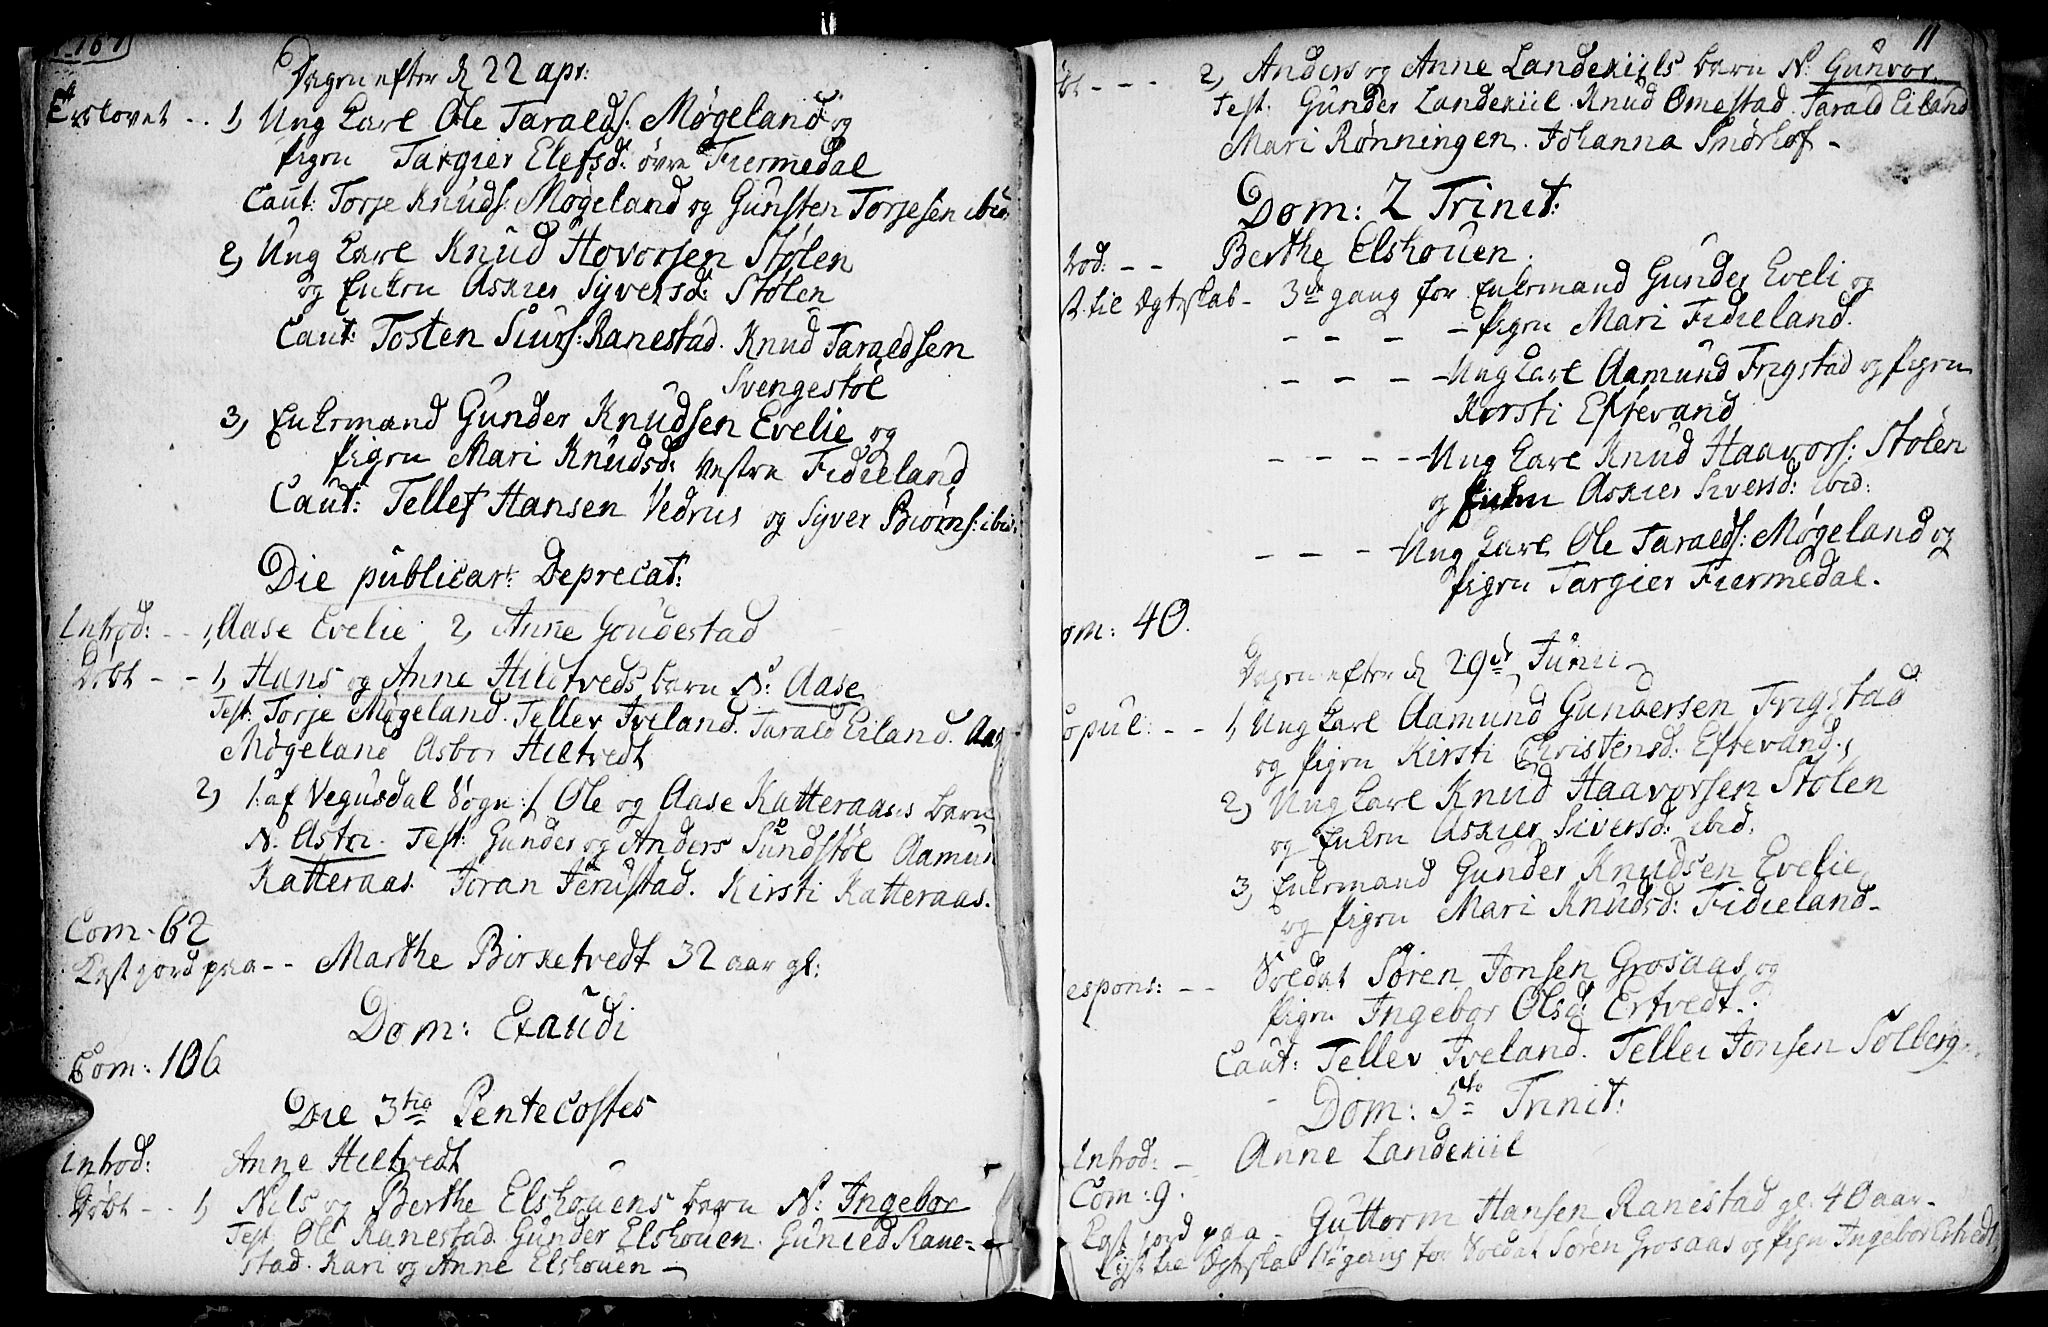 Dagen efter d 22 apr:
Trolovet - - 1, Ung Karl Ole Taralds: Møgeland og
pigen Targier Elefsd: övre Fiermedal
Caut: Torje Knuds: Møgeland og Gunsten Torjesen ibid:
2, Ung Karl Knud Hovorsen Stölen
og Enken Askier Syversd: Stölen
Caut: Tosten Siurs: Ranestad. Knud Taraldsen
Svengestöl
3, Enkemand Gunder Knudsen Evelie og
pigen Mari Knudsd: vestre Fidieland
Caut: Tellef Hansen Vedrus og Syver Biörns: ibid:
Die publicar: Deprecat:
Introd: - - 1, Aase Evelie 2, Anne Goudestad
Döbt - - 1, Hans og Anne Hiltveds barn N: Aase
Test: Torje Møgeland. Tellev Iveland. Tarald Eiland. Aas
Møgeland Asbor Hiltvedt
2, /: af Vegusdal Sogn :/ Ole og Aase Katteraases barn
N: Astri. Test: Gunder og Anders Sundstöl Aamun
Katteraas. Joran Jerustad. Kirsti Katteraas.
Com. 62
Kast jord paa - - Marthe Birketvedt 32 aar gl:
Dom: Exaudi
Com: 106
Die 3tia Pentecostes
Introd: Anne Hiltvedt
Döbt - - 1, Nils og Berthe Elshouens barn N: Ingebor
Test. Ole Ranestad. Gunder Elshouen. Gunild Rane-
stad. Kari og Anne Elshouen -
11
bt - - - 2, Anders og Anne Landekiils barn N: Gunvor.
Test: Gunder Landekiil. Knud Omestad. Tarald Eiland
Mari Rønningen. Johanna Snørhof -
Dom: 2 Trinit:
trod: - - Berthe Elshouen.
st til Ægteskab - 3de gang for Enkemand Gunder Eveli og
- - - - pigen Mari Fidieland.
- - - - Ung Karl Aamund Frigstad og pigen
Kersti Eftevand
- - - - Ung Karl Knud Haavors: Stölen
og Enken Askier Siversd: ibid:
- - - - Ung Karl Ole Taralds: Møgeland og
pigen Targier Fiermedal.
om: 40.
Dagen efter d 29de Junii
opul: - - 1, Ung Karl Aamund Gundersen Frigstad
og pigen Kirsti Christensd: Eftevand.
2, Ung Karl Knud Haavorsen Stölen
og Enken Askier Siversd: ibid:
3, Enkemand Gunder Knudsen Evelie
og pigen Mari Knudsd: Fidieland -
espons: - - Soldat Søren Jonsen Grosaas og
pigen Ingebor Olsd: Ertvedt.
Caut: Tellev Iveland. Tellev Jonsen Solberg.
Dom: 5te Trinit:
Introd: - Anne Landekiil
Com: 9.
Kast jord paa - Guttorm Hansen Ranestad gl. 40 aar -
Lyst til Ægteskab 1te gang for Soldat Søren Grosaas og pigen Ingebor Ertvedt